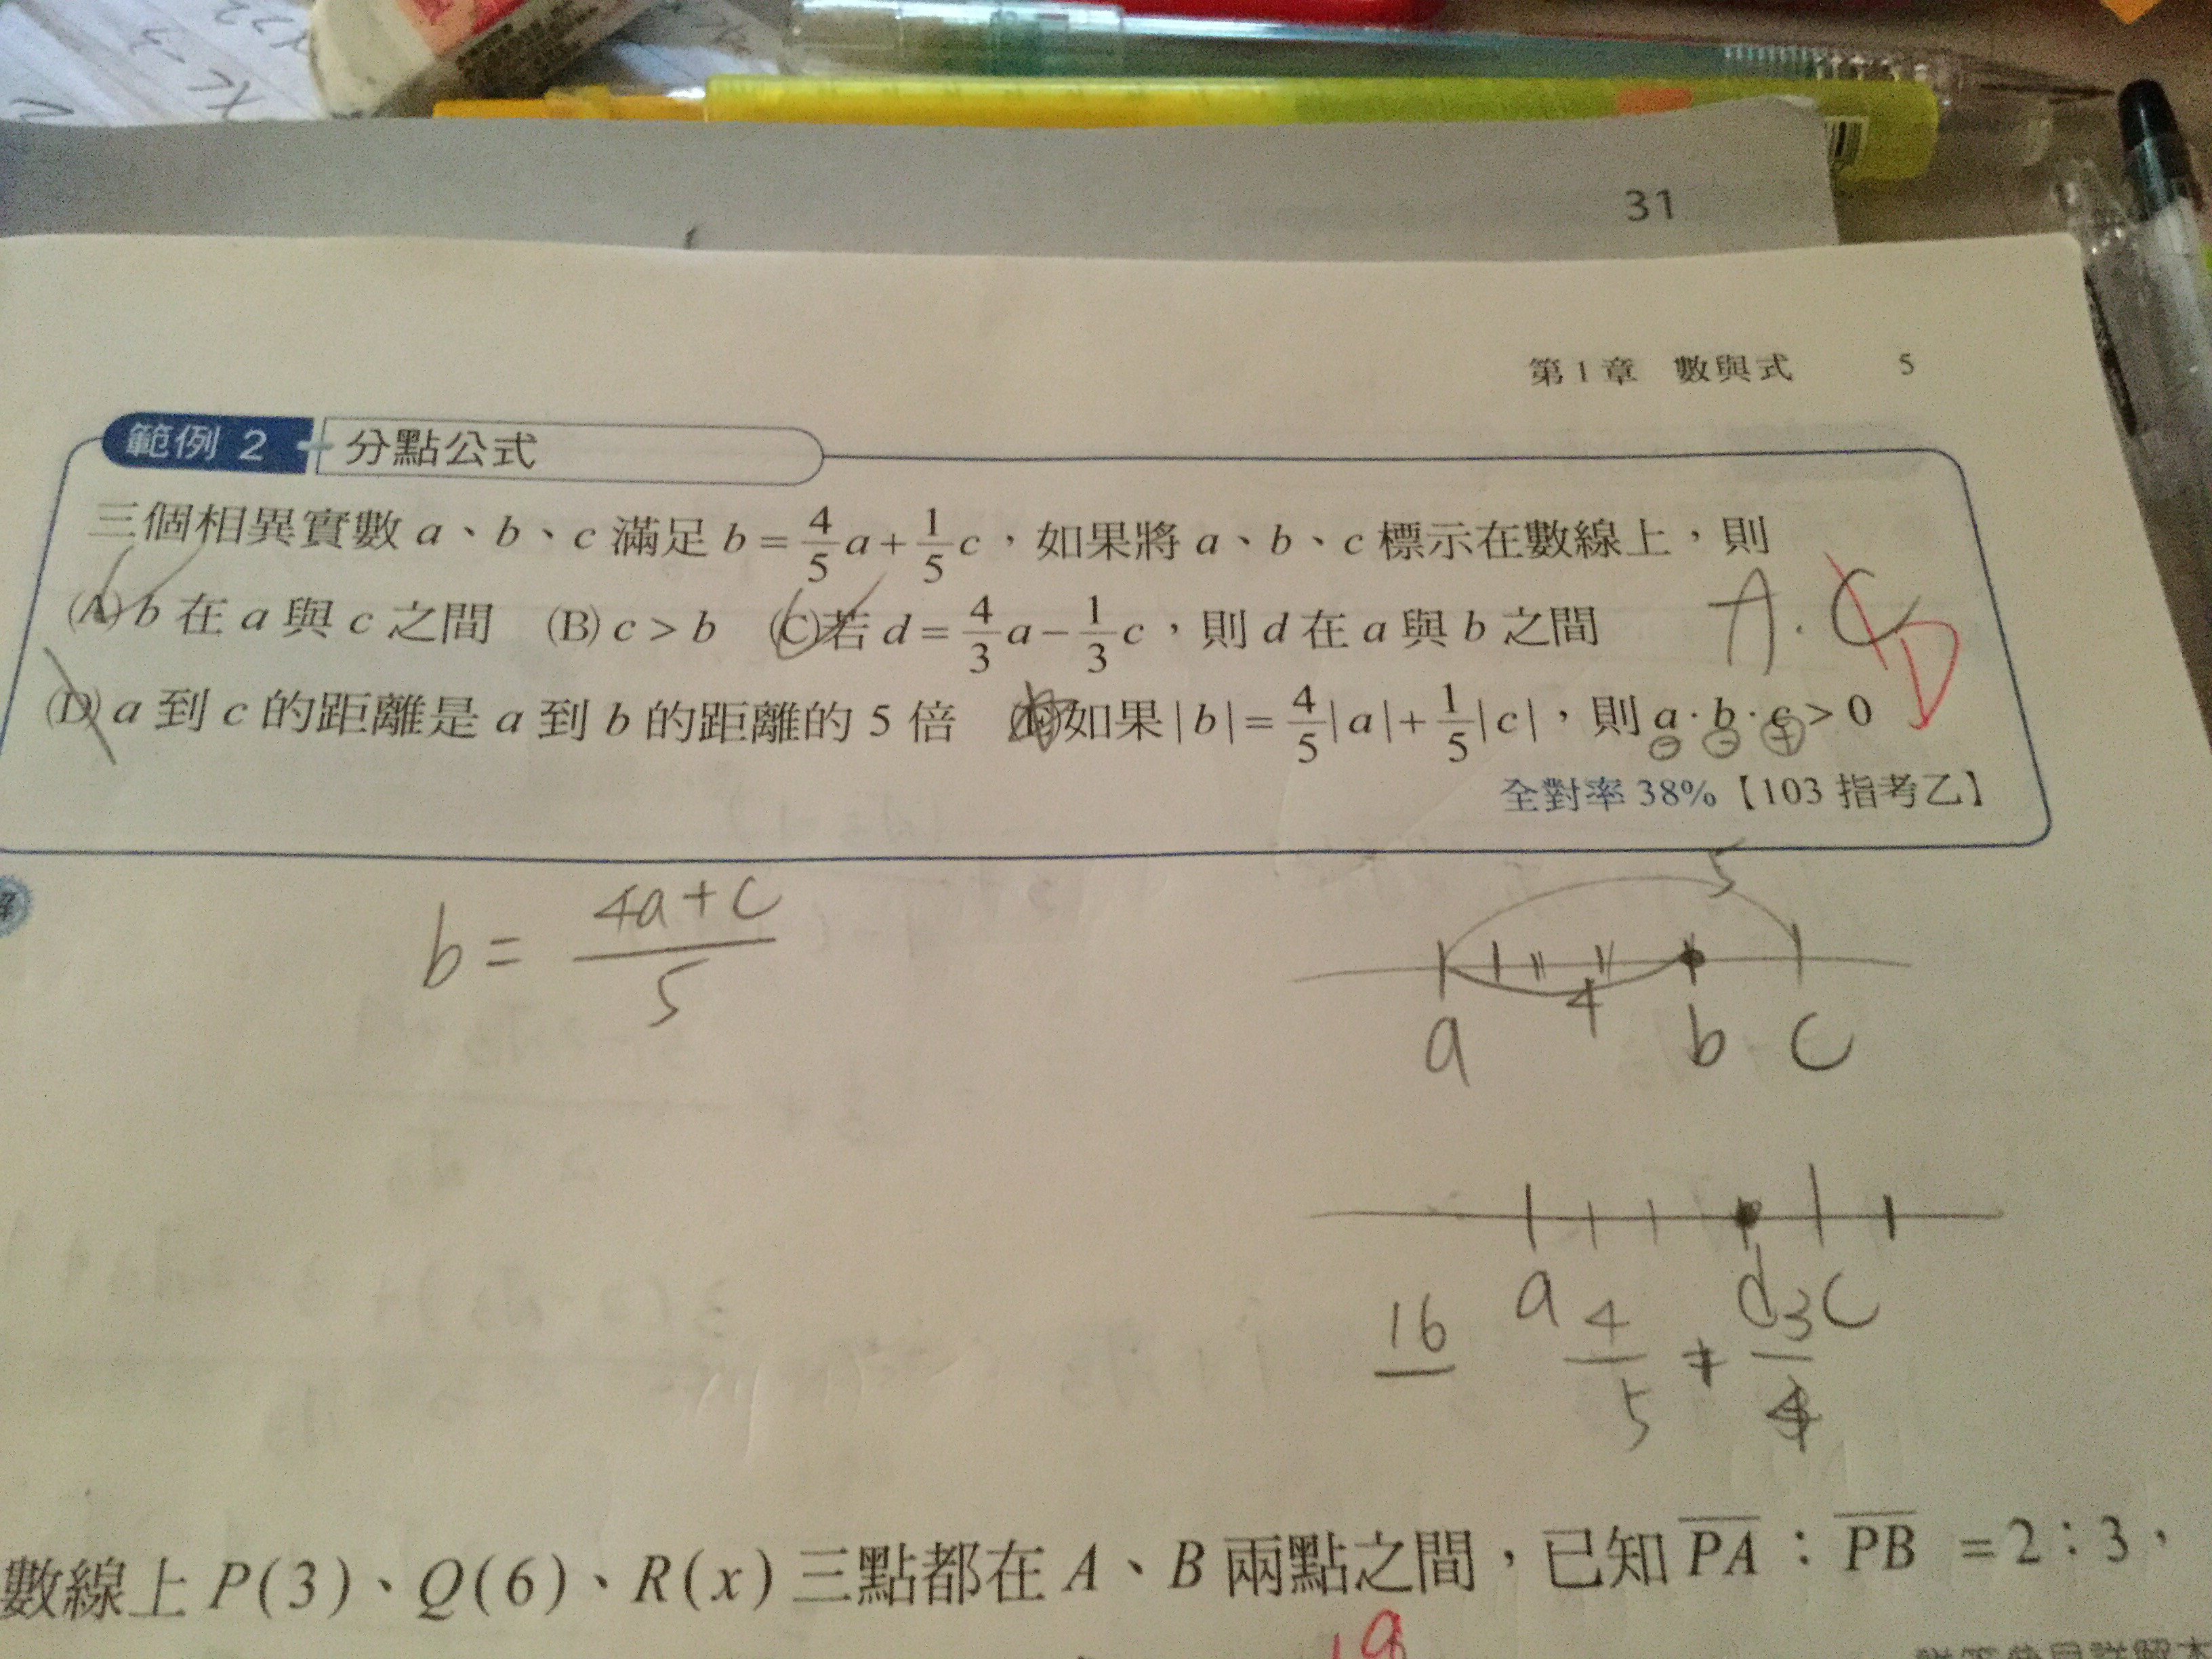 31
第1章 數與式 5
範例 2 分點公式
三個相異實數 a、b、c 滿足 b = 4/5 a + 1/5 c，如果將 a、b、c 標示在數線上，則
(A) b 在 a 與 c 之間 (B) c > b (C) 若 d = 4/3 a − 1/3 c，則 d 在 a 與 b 之間
A. C D
(D) a 到 c 的距離是 a 到 b 的距離的 5 倍 如果 |b| = 4/5 |a| + 1/5 |c|，則 a · b · c > 0
− − +
全對率 38%【103 指考乙】
b = (4a+c)/5
5
4
a b c
a d c
16 4/5 + 3/4
數線上 P(3)、Q(6)、R(x) 三點都在 A、B 兩點之間，已知 PA：PB = 2：3，